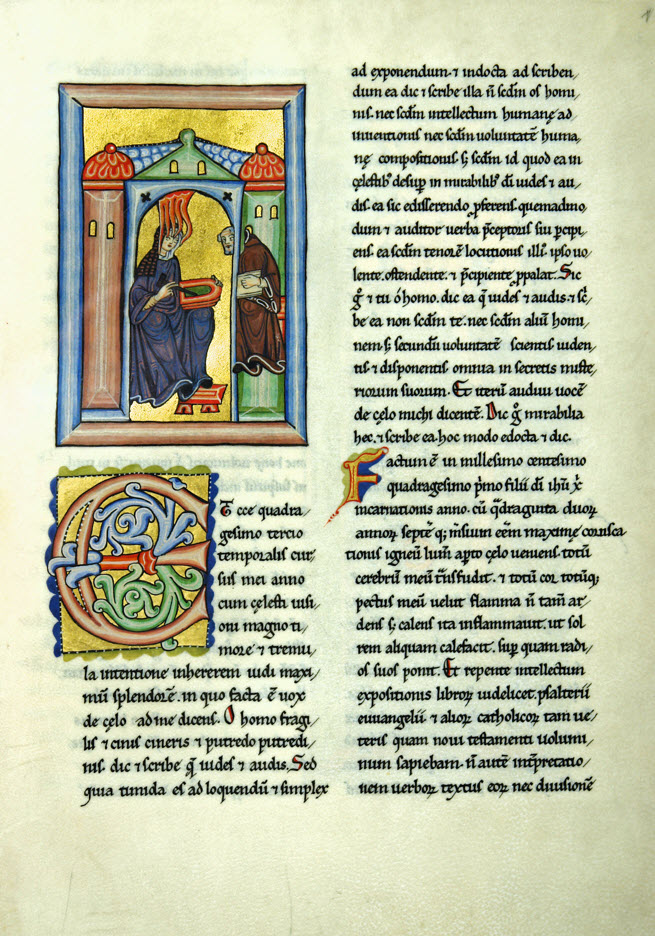 Et ecce quadra/
gesimo tercio
temporalis cur/
sus mei anno
cum cęlesti uisi/
oni magno ti/
more ⁊ tremu/
la intentione inhererem uidi maxi/
mū splendorē. in quo facta ē uox
de cęlo ad me dicens. O homo fragi/
lis ⁊ cinis cineris ⁊ putredo putredi/
nis. dic ⁊ scribe q̄ uides ⁊ audis. Sed
quia timida es ad loquendū ⁊ simplex
ad exponendum. ⁊ indocta ad scriben/
dum ea dic ⁊ scribe illa n̄ scdm os homi/
nis. nec scdm intellectum humanę ad/
inuentionis nec scdm uoluntatē huma/
nę compositionis s; scdm id quod ea in
cęlestib; desup in mirabilib; dī uides ⁊ au/
dis. ea sic edisserendo pferens. quemadmo/
dum ⁊ auditor uerba pceptoris sui pcipi/
ens. ea scdm tenorē locutionis illi; ipso uo/
lente. ostendente. ⁊ pcipiente ppalat. Sic
g̊ ⁊ tu ó homo. dic ea q̄ uides ⁊ audis. ⁊ sc̄/
be ea non scdm te. nec scdm aliū homi/
nem s; secundū uoluntatē scientis uiden/
tis ⁊ disponentis omnia in secretis miste/
riorum suorum. Et iterū audiui uocē
de cęlo michi dicentē. Dic g̊ mirabilia
hec. ⁊ scribe ea. hoc modo edocta ⁊ dic.
Factum ē in millesimo centesimo
quadragesimo p̄mo filii dī ihū x̄
incarnationis anno. cū q̄draginta duor
annor septē q; m̄sium eēm maximę corusca
tionis igneū lum̄. apto cęlo ueniens. totū
cerebrū meū t̄nsfudit. ⁊ totū cor totūq;
pectus meū uelut flamma n̄ tam̄ ar/
dens s; calens ita inflammauit. ut sol
rem aliquam calefacit. sup quam radi/
os suos ponit. Et repente intellectum
expositionis libror uidelicet. psalterii
euuangelii. ⁊ alior catholicor tam ue/
teris quam noui testamenti uolumi/
num sapiebam. n̄ autē int̄pretatio/
nem uerbor textus eor nec diuisionē